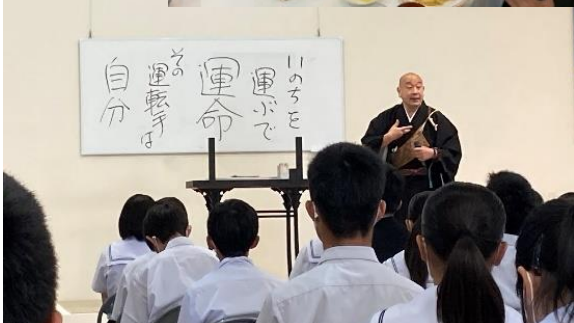 いのちを
運ぶで
運命
その
運転手は
自分